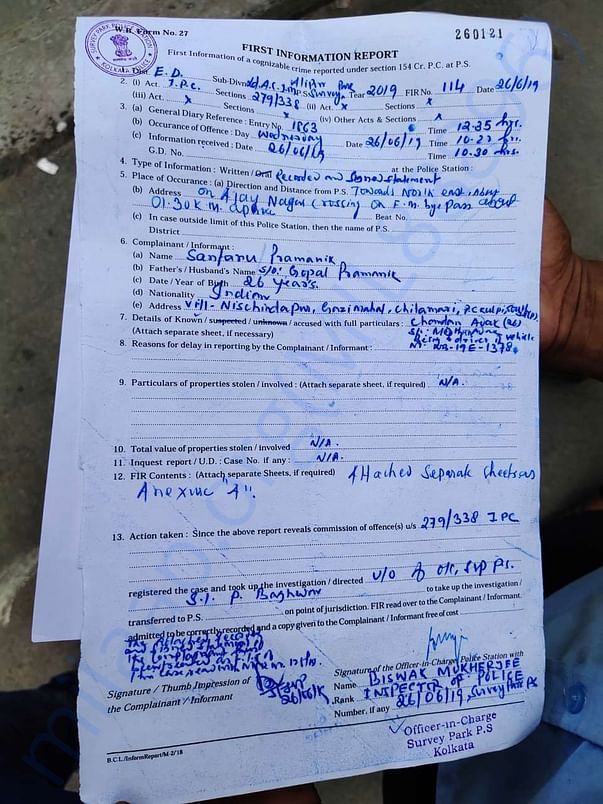 W.B. Form No. 27
260121
SURVEY PARK POLICE STATION
KOLKATA POLICE
FIRST INFORMATION REPORT
First Information of a cognizable crime reported under section 154 Cr. P.C. at P.S.
1. Dist. E.D. Sub-Divn. Alipur P.S. Survey Park Year 2019 FIR No. 114 Date 26/6/19
2. (i) Act. I.P.C. Sections 279/338 (ii) Act. x Sections x
(iii) Act. x Sections x (iv) Other Acts & Sections x
3. (a) General Diary Reference : Entry No. 1863 Time 12.35 hrs.
(b) Occurance of Offence : Day Wednesday Date 26/06/19 Time
(c) Information received : Date 26/06/19 Time 10.30 hrs.
G.D. No. at the Police Station :
4. Type of Information : Written / Oral Recorded and signed statement
5. Place of Occurance : (a) Direction and Distance from P.S. Towards North east, about
(b) Address on Ajay Nagar Crossing on E.M. bye Pass about
01.30 K.M. Beat No.
(c) In case outside limit of this Police Station, then the name of P.S.
District
6. Complainant / Informant :
(a) Name Santanu Pramanik
(b) Father's / Husband's Name S/o. Gopal Pramanik
(c) Date / Year of Birth 26 Years.
(d) Nationality Indian
(e) Address Vill- Nischindapur,
7. Details of Known / suspected / unknown / accused with full particulars : Chandan
(Attach separate sheet, if necessary)
being driver of vehicle
8. Reasons for delay in reporting by the Complainant / Informant :
No. WB-19E-1378.
9. Particulars of properties stolen / involved : (Attach separate sheet, if required) N/A.
10. Total value of properties stolen / involved N/A.
11. Inquest report / U.D. : Case No. if any : N/A.
12. FIR Contents : (Attach separate Sheets, if required) Attached Separate Sheet as
Anexure "A".
13. Action taken : Since the above report reveals commission of offence(s) u/s 279/338 IPC
registered the case and took up the investigation / directed U/O of O/C, SVP PS.
S.I. P. to take up the investigation /
transferred to P.S. on point of jurisdiction. FIR read over to the Complainant / Informant
admitted to be correctly recorded and a copy given to the Complainant / Informant free of cost
Signature of the Officer-in-Charge Police Station with
Name BISWAK MUKHERJEE
Rank INSPECTOR OF POLICE
Number, if any 26/06/19, Survey Park PS
Signature / Thumb Impression of
the Complainant / Informant
Officer-in-Charge
Survey Park P.S
Kolkata
B.C.L./InformReport/M-2/18